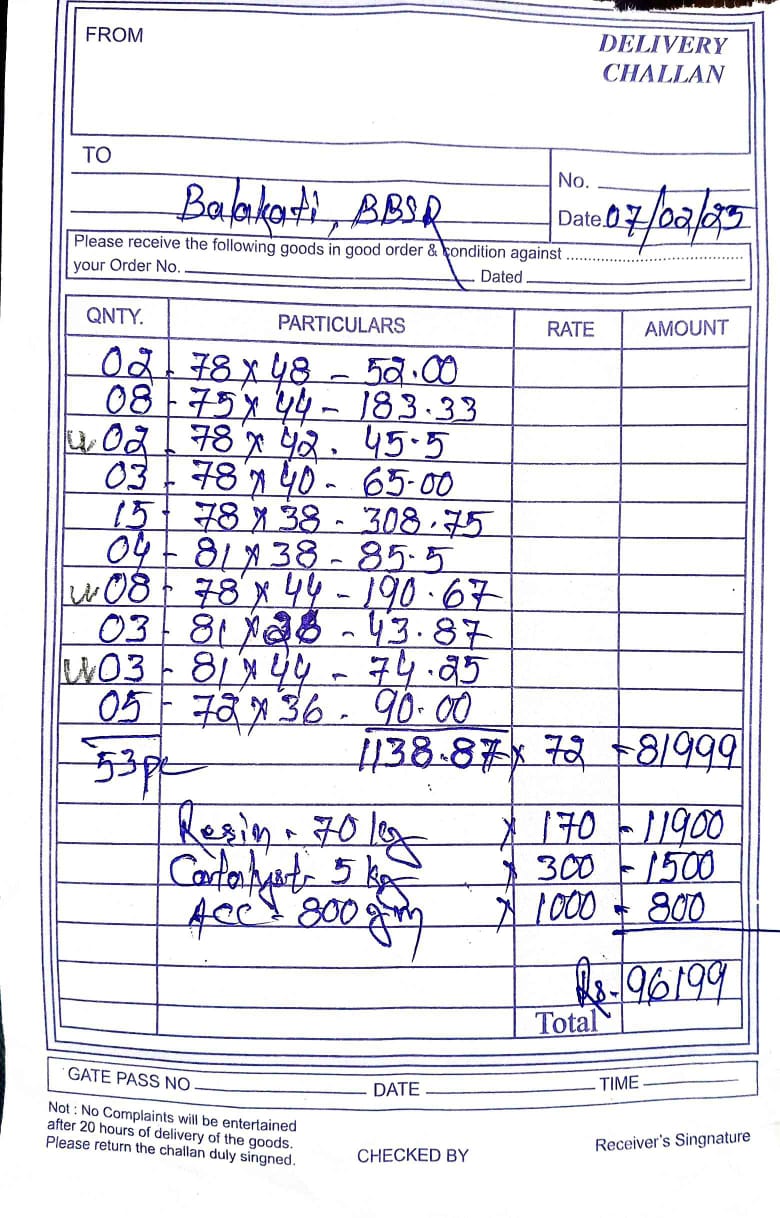 FROM
DELIVERY
CHALLAN
TO
Balakati, BBSR
No.
Date 07/02/25
Please receive the following goods in good order & condition against
your Order No. Dated
QNTY. PARTICULARS RATE AMOUNT
02 - 78 x 48 - 52.00
08 - 75 x 44 - 183.33
w 02 - 78 x 42 . 45.5
03 - 78 x 40 - 65-00
15 - 78 x 38 - 308.75
04 - 81 x 38 - 85.5
w 08 - 78 x 44 - 190.67
03 - 81 x 26 - 43.87
w 03 - 81 x 44 - 74.25
05 - 72 x 36 - 90.00
53 pc 1138.87 x 72 = 81999
Resin - 70 kg x 170 - 11900
Catalyst - 5 kg x 300 - 1500
ACC - 800 gm x 1000 = 800
Rs - 96199
Total
GATE PASS NO DATE TIME
Not : No Complaints will be entertained
after 20 hours of delivery of the goods.
Please return the challan duly singned.
CHECKED BY
Receiver's Singnature